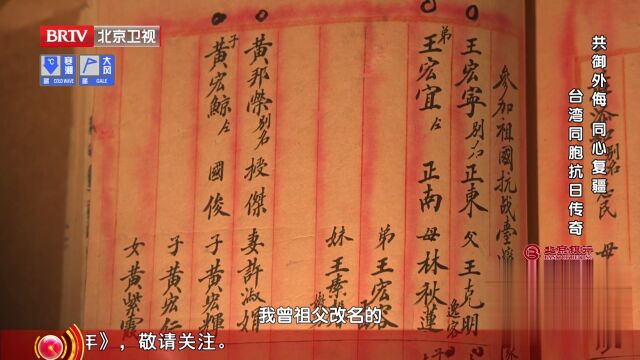 BRTV 北京卫视
寒潮
COLD WAVE
大风
GALE
共御外侮 同心复疆
台湾同胞抗日传奇
參加祖國抗战臺
王宏寧 别名 正東 父 王克明
弟 王宏宜 仝 正南 母 林秋蓮
弟 王宏
妹 王
黃邦傑 别名 授傑 妻 許淑娟
子 黃宏鯨 仝 國俊 子 黃宏輝
子 黃宏仁
女 黃紫霞
民 母
我曾祖父改名的
年》，敬请关注。